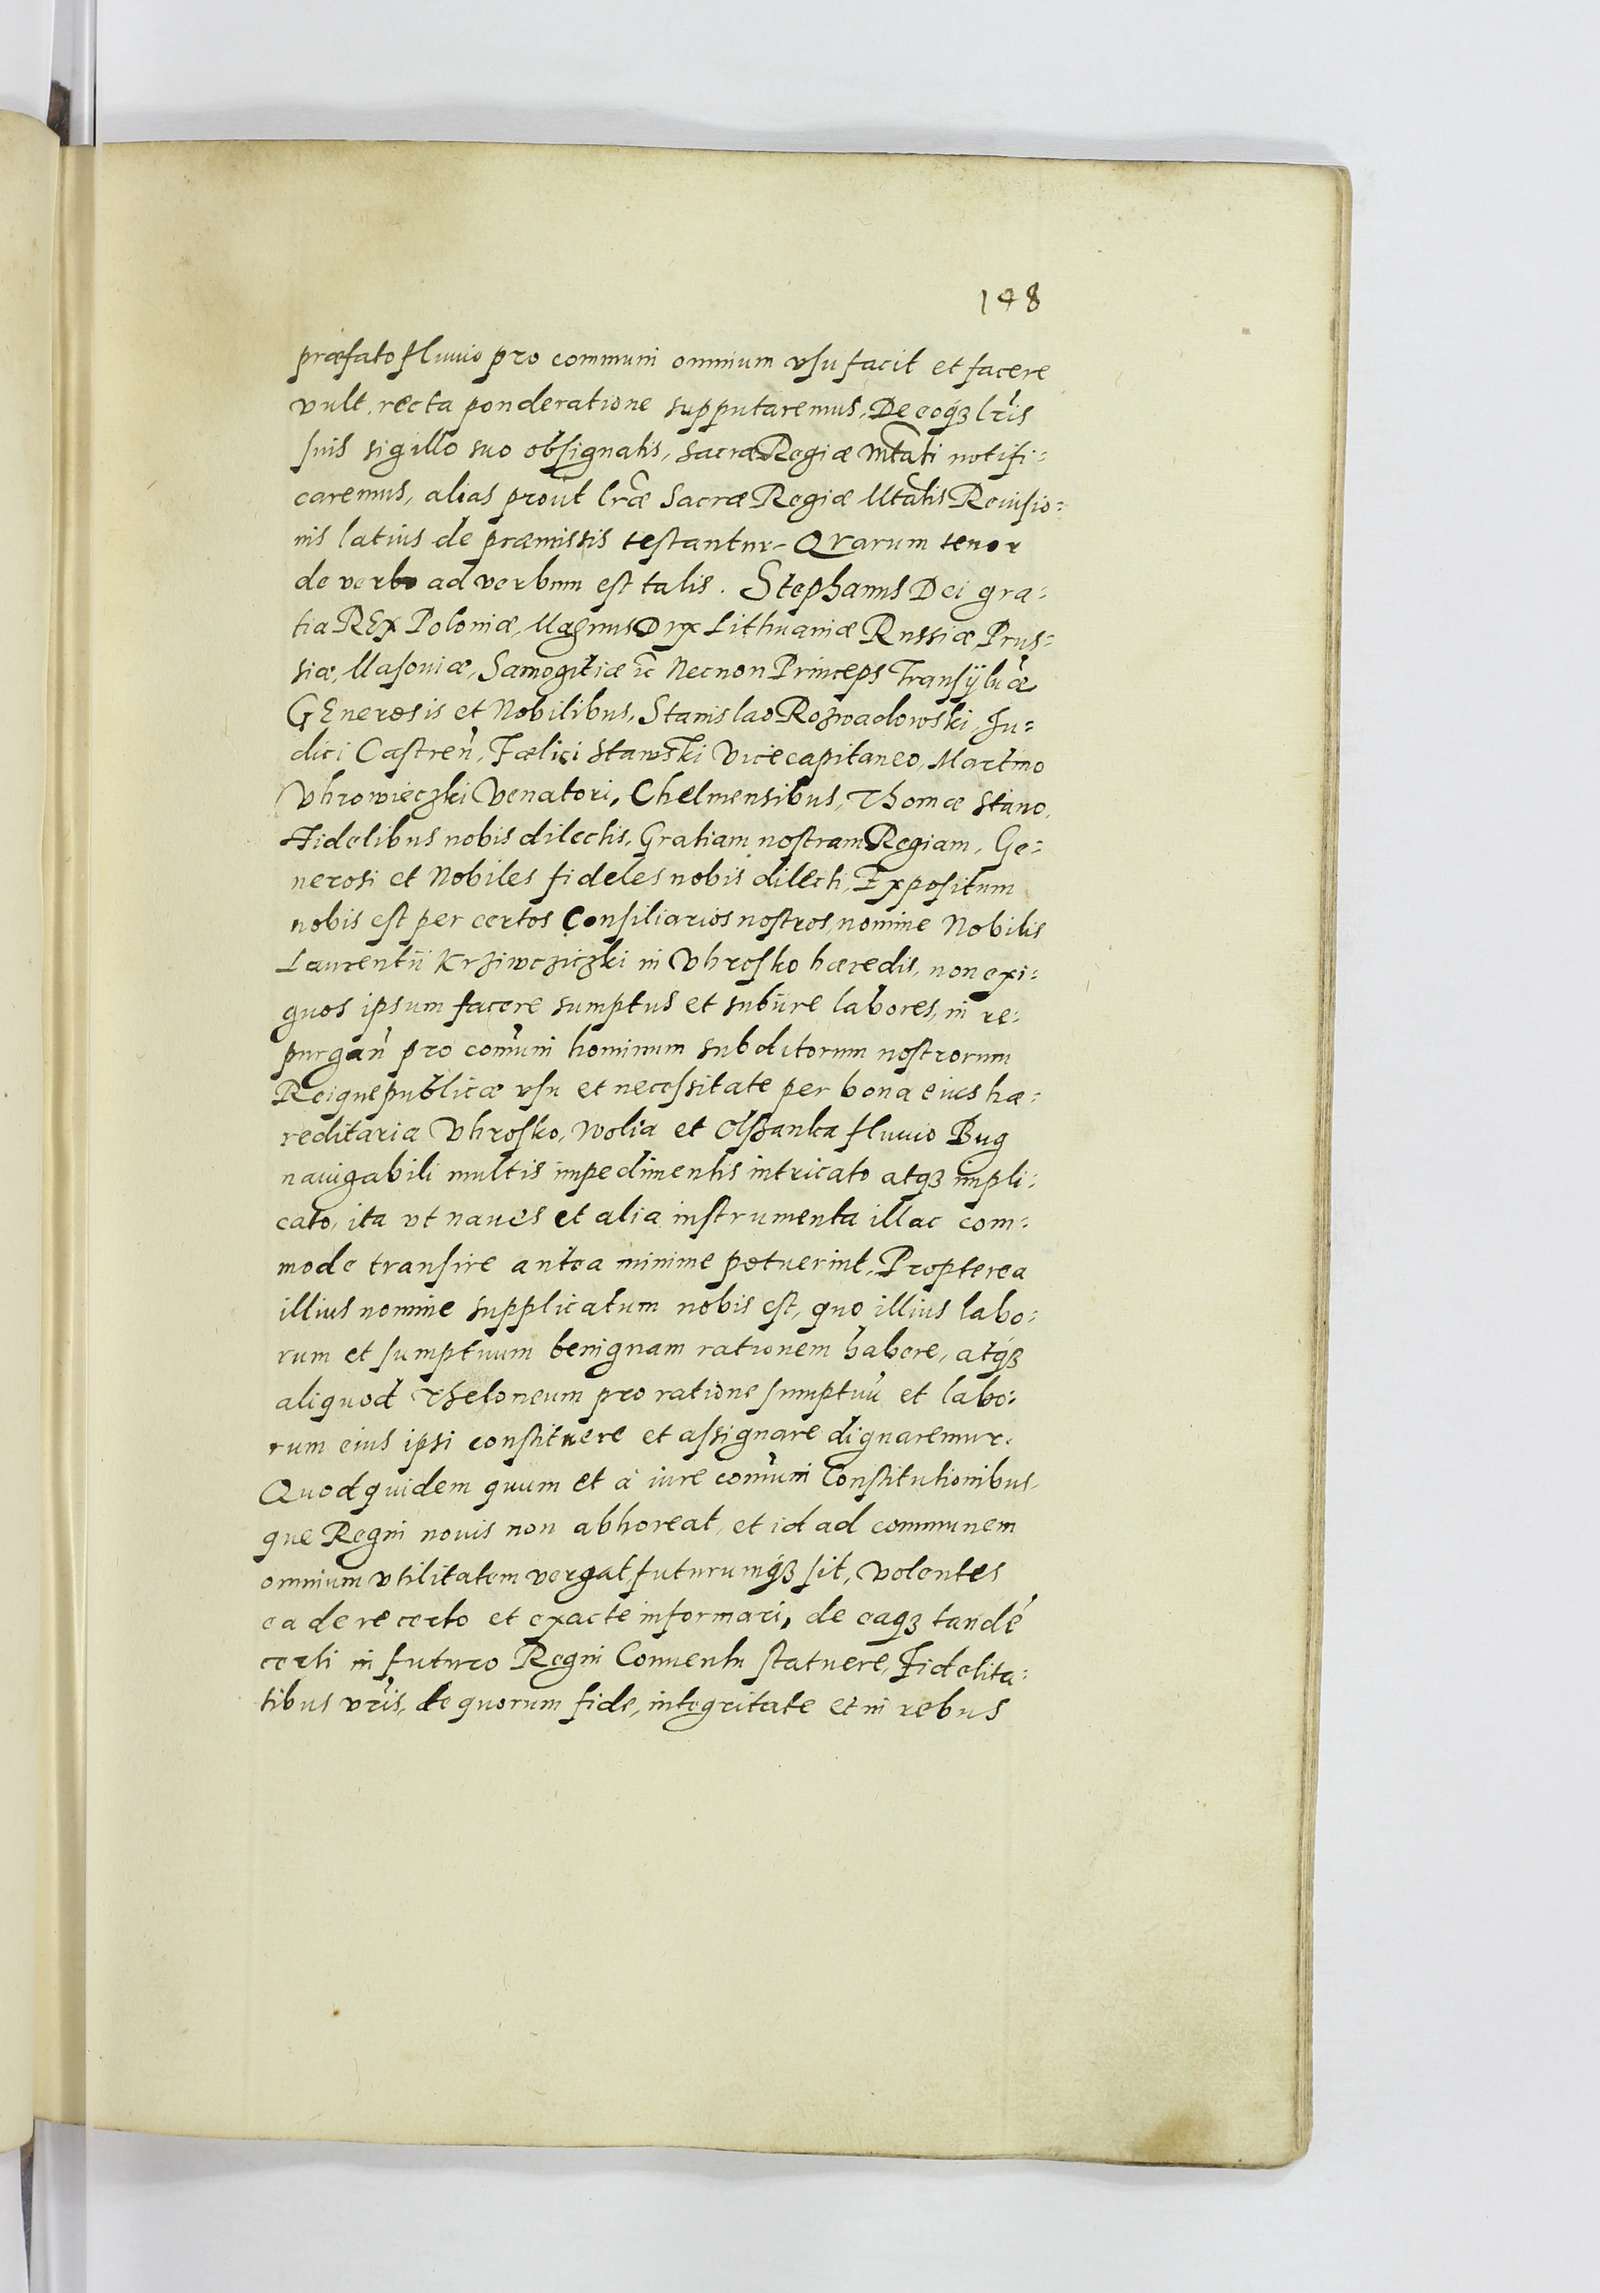 148
præfato fluuio pro communi omnium vsu facit et facere
vult, recta ponderatione supputaremus, De eoq́ꝫ lr̃is
suis sigillo suo obsignatis, Sacræ Regiæ Mt̃ati notifi=
caremus, alias prout lr̃æ Sacræ Regiæ Mt̃atis Reuisio=
nis latius de præmissis testantur. Qvarum tenor
de verbo ad verbum est talis. Stephanus Dei gra=
tia REx Poloniæ, Magnus Dvx Lithuaniæ Russiæ, Prus=
siæ, Masouiæ, Samogitiæ ꝛc̃ Necnon Princeps Transylũæ
GEnerosis et Nobilibus, Stanislao Rozwadowski Iu=
dici Castren̄, Fœlici Stawski Vicecapitaneo, Martino
Vhrowieczki Venatori, Chelmensibus, Thomæ Stano,
Fidelibus nobis dilectis, Gratiam nostram Regiam, Ge=
nerosi et Nobiles fideles nobis dilecti, Expositum
nobis est per certos Consiliarios nostros, nomine Nobilis
Laurentii Krziwcziczki in Vhrosko hæredis, non exi=
guos ipsum facere sumptus et subiire labores, in re=
purgan̄ pro com̄uni hominum subditorum nostrorum
Reiquepublicæ vsu et necessitate per bona eius hæ=
reditaria Vhrosko, Wolia et Olszanka fluuio Bug
nauigabili multis impedimentis intricato atqꝫ impli=
cato, ita vt naues et alia instrumenta illac com=
mode transire antea minime potuerint, Propterea
illius nomine supplicatum nobis est, quo illius labo=
rum et sumptuum benignam rationem habere, atq́ꝫ
aliquod Theloneum pro ratione sumptuū et labo=
rum eius ipsi constituere et assignare dignaremur.
Quod quidem quum et à iure com̄uni Constitutionibus
que Regni nouis non abhoreat, et id ad communem
omnium vtilitatem vergat futurumq́ꝫ sit, volentes
ea de re certo et exacte informari, de eaqꝫ tandē
certi in futuro Regni Conuentu statuere, Fidelita=
tibus vr̃is, de quorum fide, integritate et in rebus